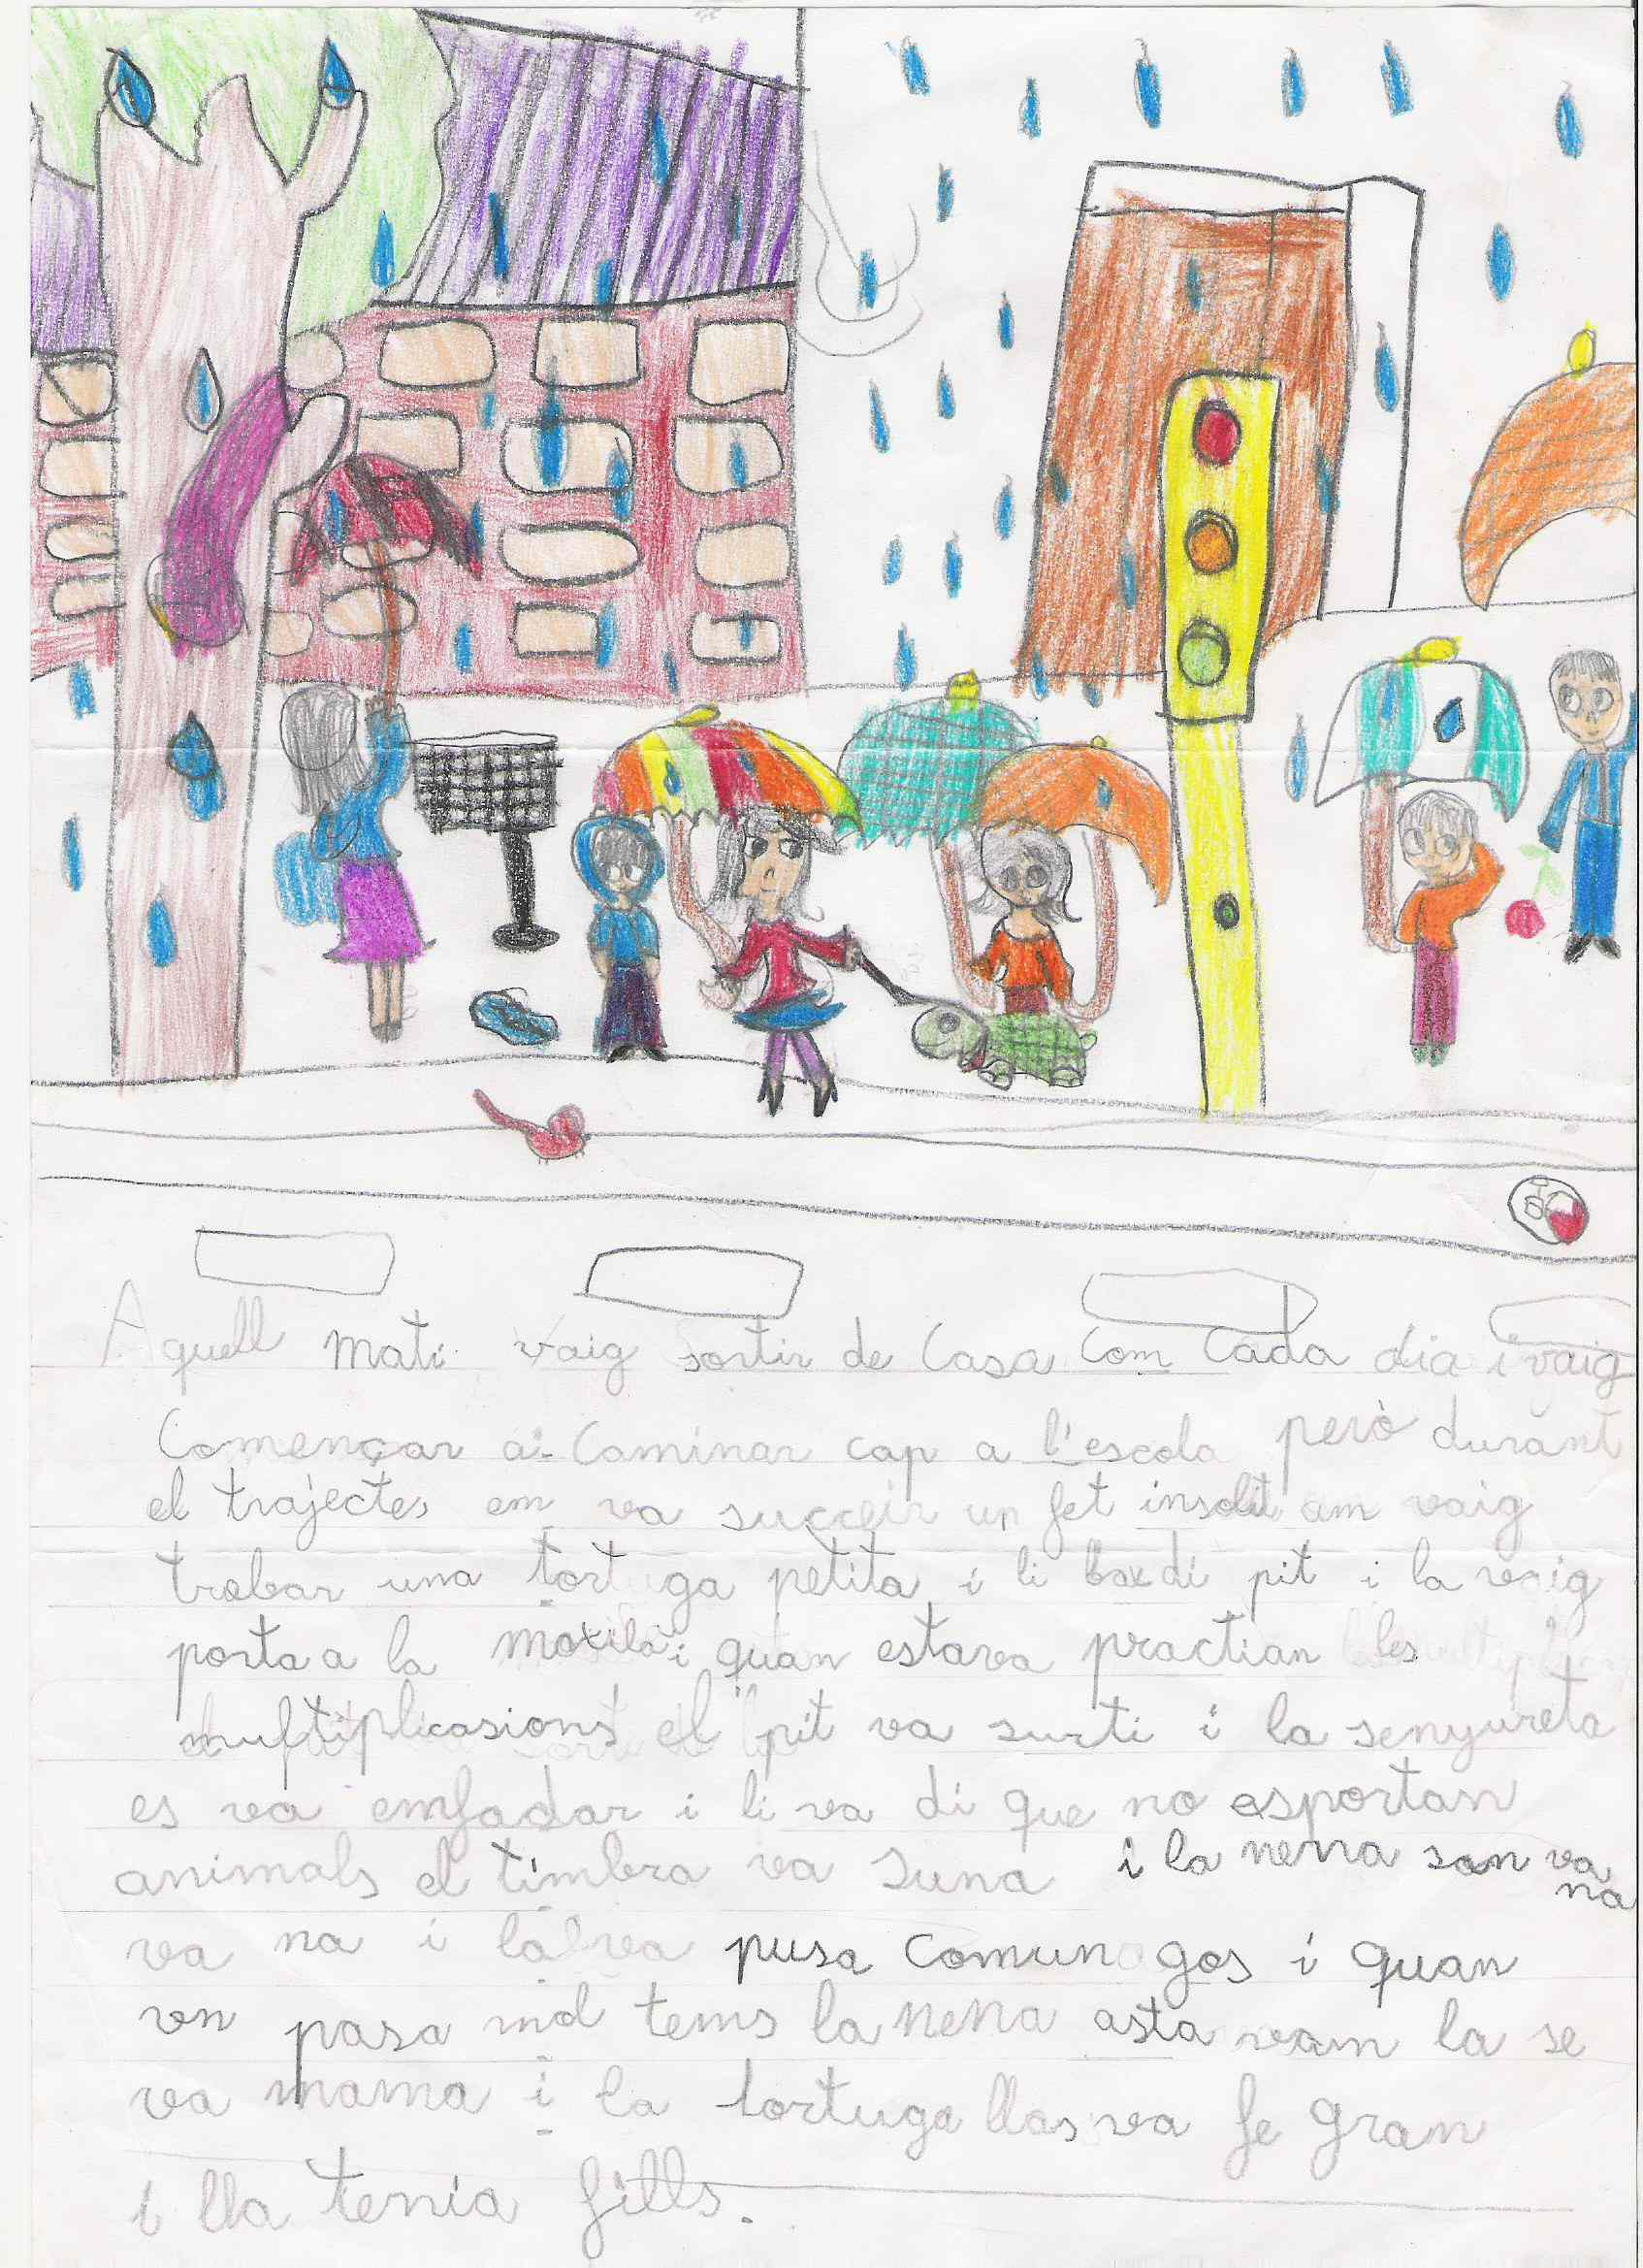 Aquell matí vaig sortir de casa com cada dia i vaig
començar a caminar cap a l'escola però durant
el trajecte, em va succeir un fet insolit am vaig
trobar una tortuga petita i li di pit i la vaig
portaa a la moxila i quan estava practian les
multiplicasions el pit va surti i la senyureta
es va emfadar i li va di que no asportan
animals el timbra va suna i la nena san va
na
va na i la va pusa comun gos i quan
vn pasa mol tems la nena asta vam la se
va mama i la tortuga llas va fe gran
i lla tenia fills.